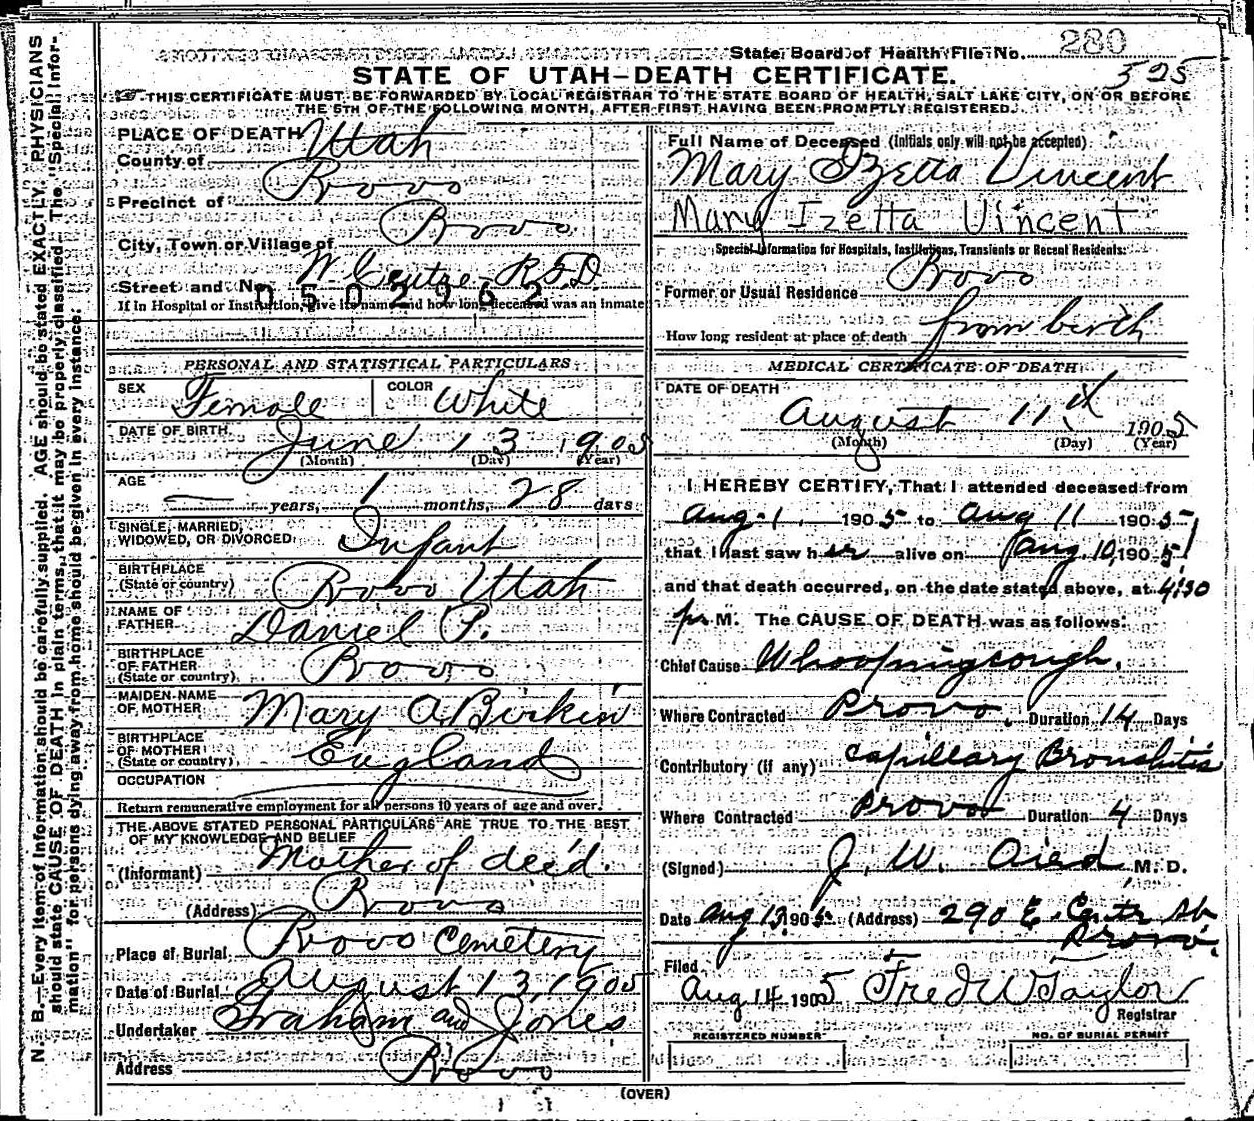 State Board of Health File No. 280
525
STATE OF UTAH—DEATH CERTIFICATE.
THIS CERTIFICATE MUST BE FORWARDED BY LOCAL REGISTRAR TO THE STATE BOARD OF HEALTH, SALT LAKE CITY, ON OR BEFORE
THE 5TH OF THE FOLLOWING MONTH, AFTER FIRST HAVING BEEN PROMPTLY REGISTERED.
N. B.—Every item of information should be carefully supplied. AGE should be stated EXACTLY. PHYSICIANS
should state CAUSE OF DEATH in plain terms, that it may be properly classified. The "Special Infor-
mation" for persons dying away from home should be given in every instance.
PLACE OF DEATH
County of Utah
Precinct of Provo
City, Town or Village of Provo
Street and No. W Center R.F.D
If in Hospital or Institution, give its name and how long deceased was an inmate
PERSONAL AND STATISTICAL PARTICULARS
SEX Female COLOR White
DATE OF BIRTH June 13 1905
(Month) (Day) (Year)
AGE — years, 1 months, 28 days
SINGLE, MARRIED,
WIDOWED, OR DIVORCED Infant
BIRTHPLACE
(State or country) Provo Utah
NAME OF
FATHER Daniel P.
BIRTHPLACE
OF FATHER
(State or country) Provo
MAIDEN NAME
OF MOTHER Mary A. Birkin
BIRTHPLACE
OF MOTHER
(State or country) England
OCCUPATION
Return remunerative employment for all persons 10 years of age and over.
THE ABOVE STATED PERSONAL PARTICULARS ARE TRUE TO THE BEST
OF MY KNOWLEDGE AND BELIEF
(Informant) Mother of dec'd.
(Address) Provo
Place of Burial Provo Cemetery
Date of Burial August 13, 1905
Undertaker Graham and Jones
Address Provo
Full Name of Deceased (Initials only will not be accepted)
Mary Izetta Vincent
Mary Izetta Vincent
Special Information for Hospitals, Institutions, Transients or Recent Residents:
Former or Usual Residence Provo
How long resident at place of death from birth
MEDICAL CERTIFICATE OF DEATH
DATE OF DEATH
August 11th 1905
(Month) (Day) (Year)
I HEREBY CERTIFY, That I attended deceased from
Aug. 1. 1905 to Aug 11 1905
that I last saw her alive on Aug. 10, 1905
and that death occurred, on the date stated above, at 4:30
p. M. The CAUSE OF DEATH was as follows:
Chief Cause Whoopingcough.
Where Contracted Provo. Duration 14 Days
Contributory (if any) Capillary Bronshitis
Where Contracted Provo Duration 4 Days
(Signed) J. W. Aird M. D.
Date Aug 13, 1905. (Address) 290 E. Centr St.
Provo.
Filed
Aug 14 1905 Fred W Taylor
Registrar
REGISTERED NUMBER NO. OF BURIAL PERMIT
(OVER)